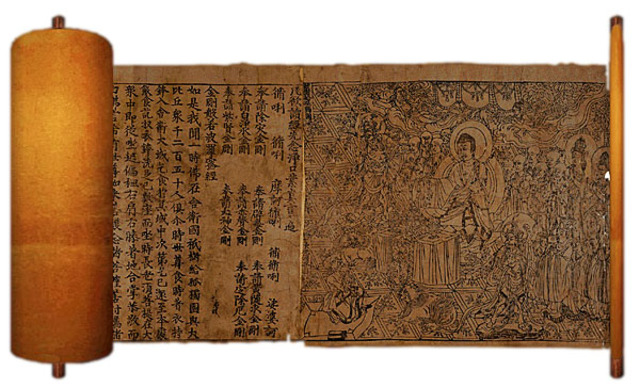 凡欲讀經先念淨口業真言一遍
脩唎 脩唎 摩訶脩唎 脩脩唎 娑婆訶
奉請除灾金剛 奉請辟毒金剛 奉請黃隨求金剛
奉請白淨水金剛 奉請赤聲金剛 奉請定除厄金剛
奉請紫賢金剛 奉請大神金剛
金剛般若波羅蜜經
如是我聞一時佛在舍衛國祇樹給孤獨園與大
比丘眾千二百五十人俱尒時世尊食時著衣持
鉢入舍衛大城乞食於其城中次第乞已還至本處
飯食訖收衣鉢洗足已敷座而坐時長老須菩提在大
眾中即從座起偏袒右肩右膝著地合掌恭敬而